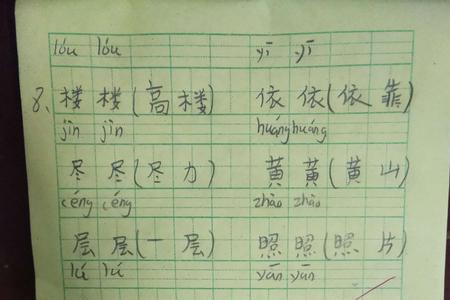 lóu lóu yī yī
8、楼 楼(高 楼) 依 依(依 靠)
jìn jìn huáng huáng
尽 尽(尽 力) 黄 黄(黄 山)
céng céng zhào zhào
层 层(一 层) 照 照(照 片)